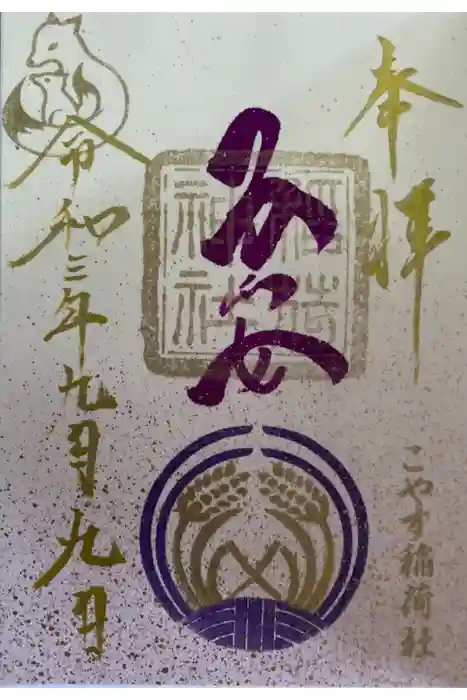 奉拝
こやす稲荷社
稲荷
神社
令和三年九月九日